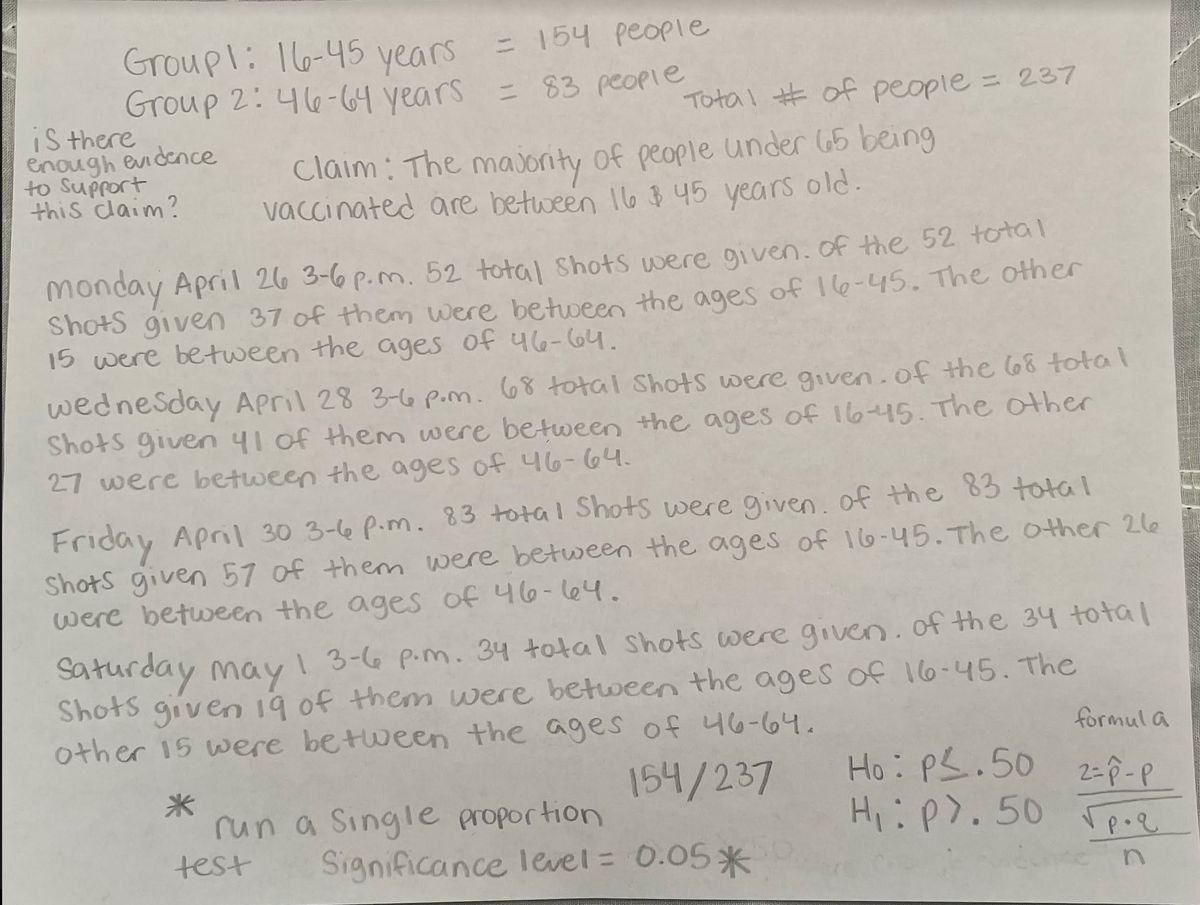 Group 1: 16-45 years = 154 people
Group 2: 46-64 years = 83 people
Total # of people = 237
is there
enough evidence
to support
this claim?
Claim: The majority of people under 65 being
vaccinated are between 16 & 45 years old.
monday April 26 3-6 p.m. 52 total shots were given. of the 52 total
shots given 37 of them were between the ages of 16-45. The other
15 were between the ages of 46-64.
wednesday April 28 3-6 p.m. 68 total shots were given. of the 68 total
shots given 41 of them were between the ages of 16-45. The other
27 were between the ages of 46-64.
Friday April 30 3-6 p.m. 83 total shots were given. of the 83 total
shots given 57 of them were between the ages of 16-45. The other 26
were between the ages of 46-64.
Saturday may 1 3-6 p.m. 34 total shots were given. of the 34 total
shots given 19 of them were between the ages of 16-45. The
other 15 were between the ages of 46-64.
154/237
* run a single proportion
test Significance level = 0.05 *
H₀: p≤.50
H₁: p>.50
formula
z=p̂-p
√p·q
n